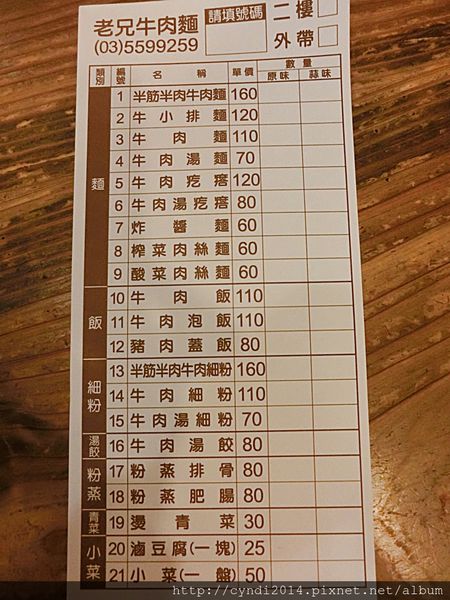 老兄牛肉麵
(03)5599259
請填號碼
二樓
外帶
類別 編號 名稱 單價 數量
原味 蒜味
麵
1 半筋半肉牛肉麵 160
2 牛小排麵 120
3 牛肉麵 110
4 牛肉湯麵 70
5 牛肉疙瘩 120
6 牛肉湯疙瘩 80
7 炸醬麵 60
8 榨菜肉絲麵 60
9 酸菜肉絲麵 60
飯
10 牛肉飯 110
11 牛肉泡飯 110
12 豬肉蓋飯 80
細粉
13 半筋半肉牛肉細粉 160
14 牛肉細粉 110
15 牛肉湯細粉 70
湯餃
16 牛肉湯餃 80
粉蒸
17 粉蒸排骨 80
18 粉蒸肥腸 80
青菜
19 燙青菜 30
小菜
20 滷豆腐(一塊) 25
21 小菜(一盤) 50
http://cyndi2014.pixnet.net/album